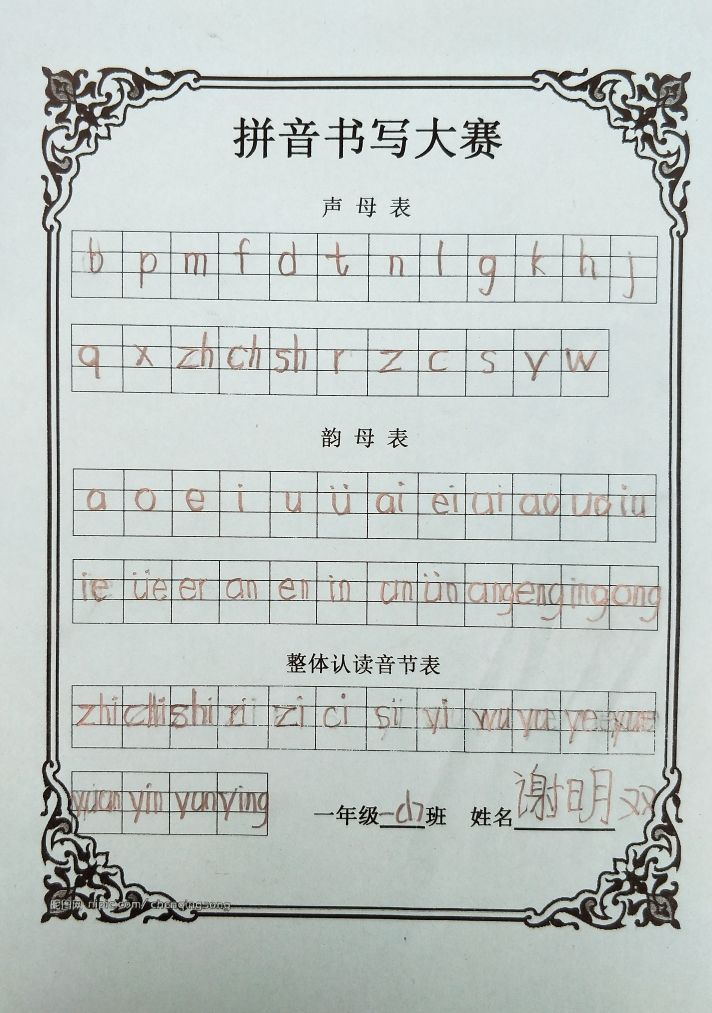 拼音书写大赛
声母表
b p m f d t n l g k h j
q x zh ch sh r z c s y w
韵母表
a o e i u ü ai ei ui ao uo iu
ie üe er an en in un ün ang eng ing ong
整体认读音节表
zhi chi shi ri zi ci si yi wu yu ye yue
yuan yin yun ying
一年级 班 姓名 谢明双
昵图网 nipic.com/chenqingsong